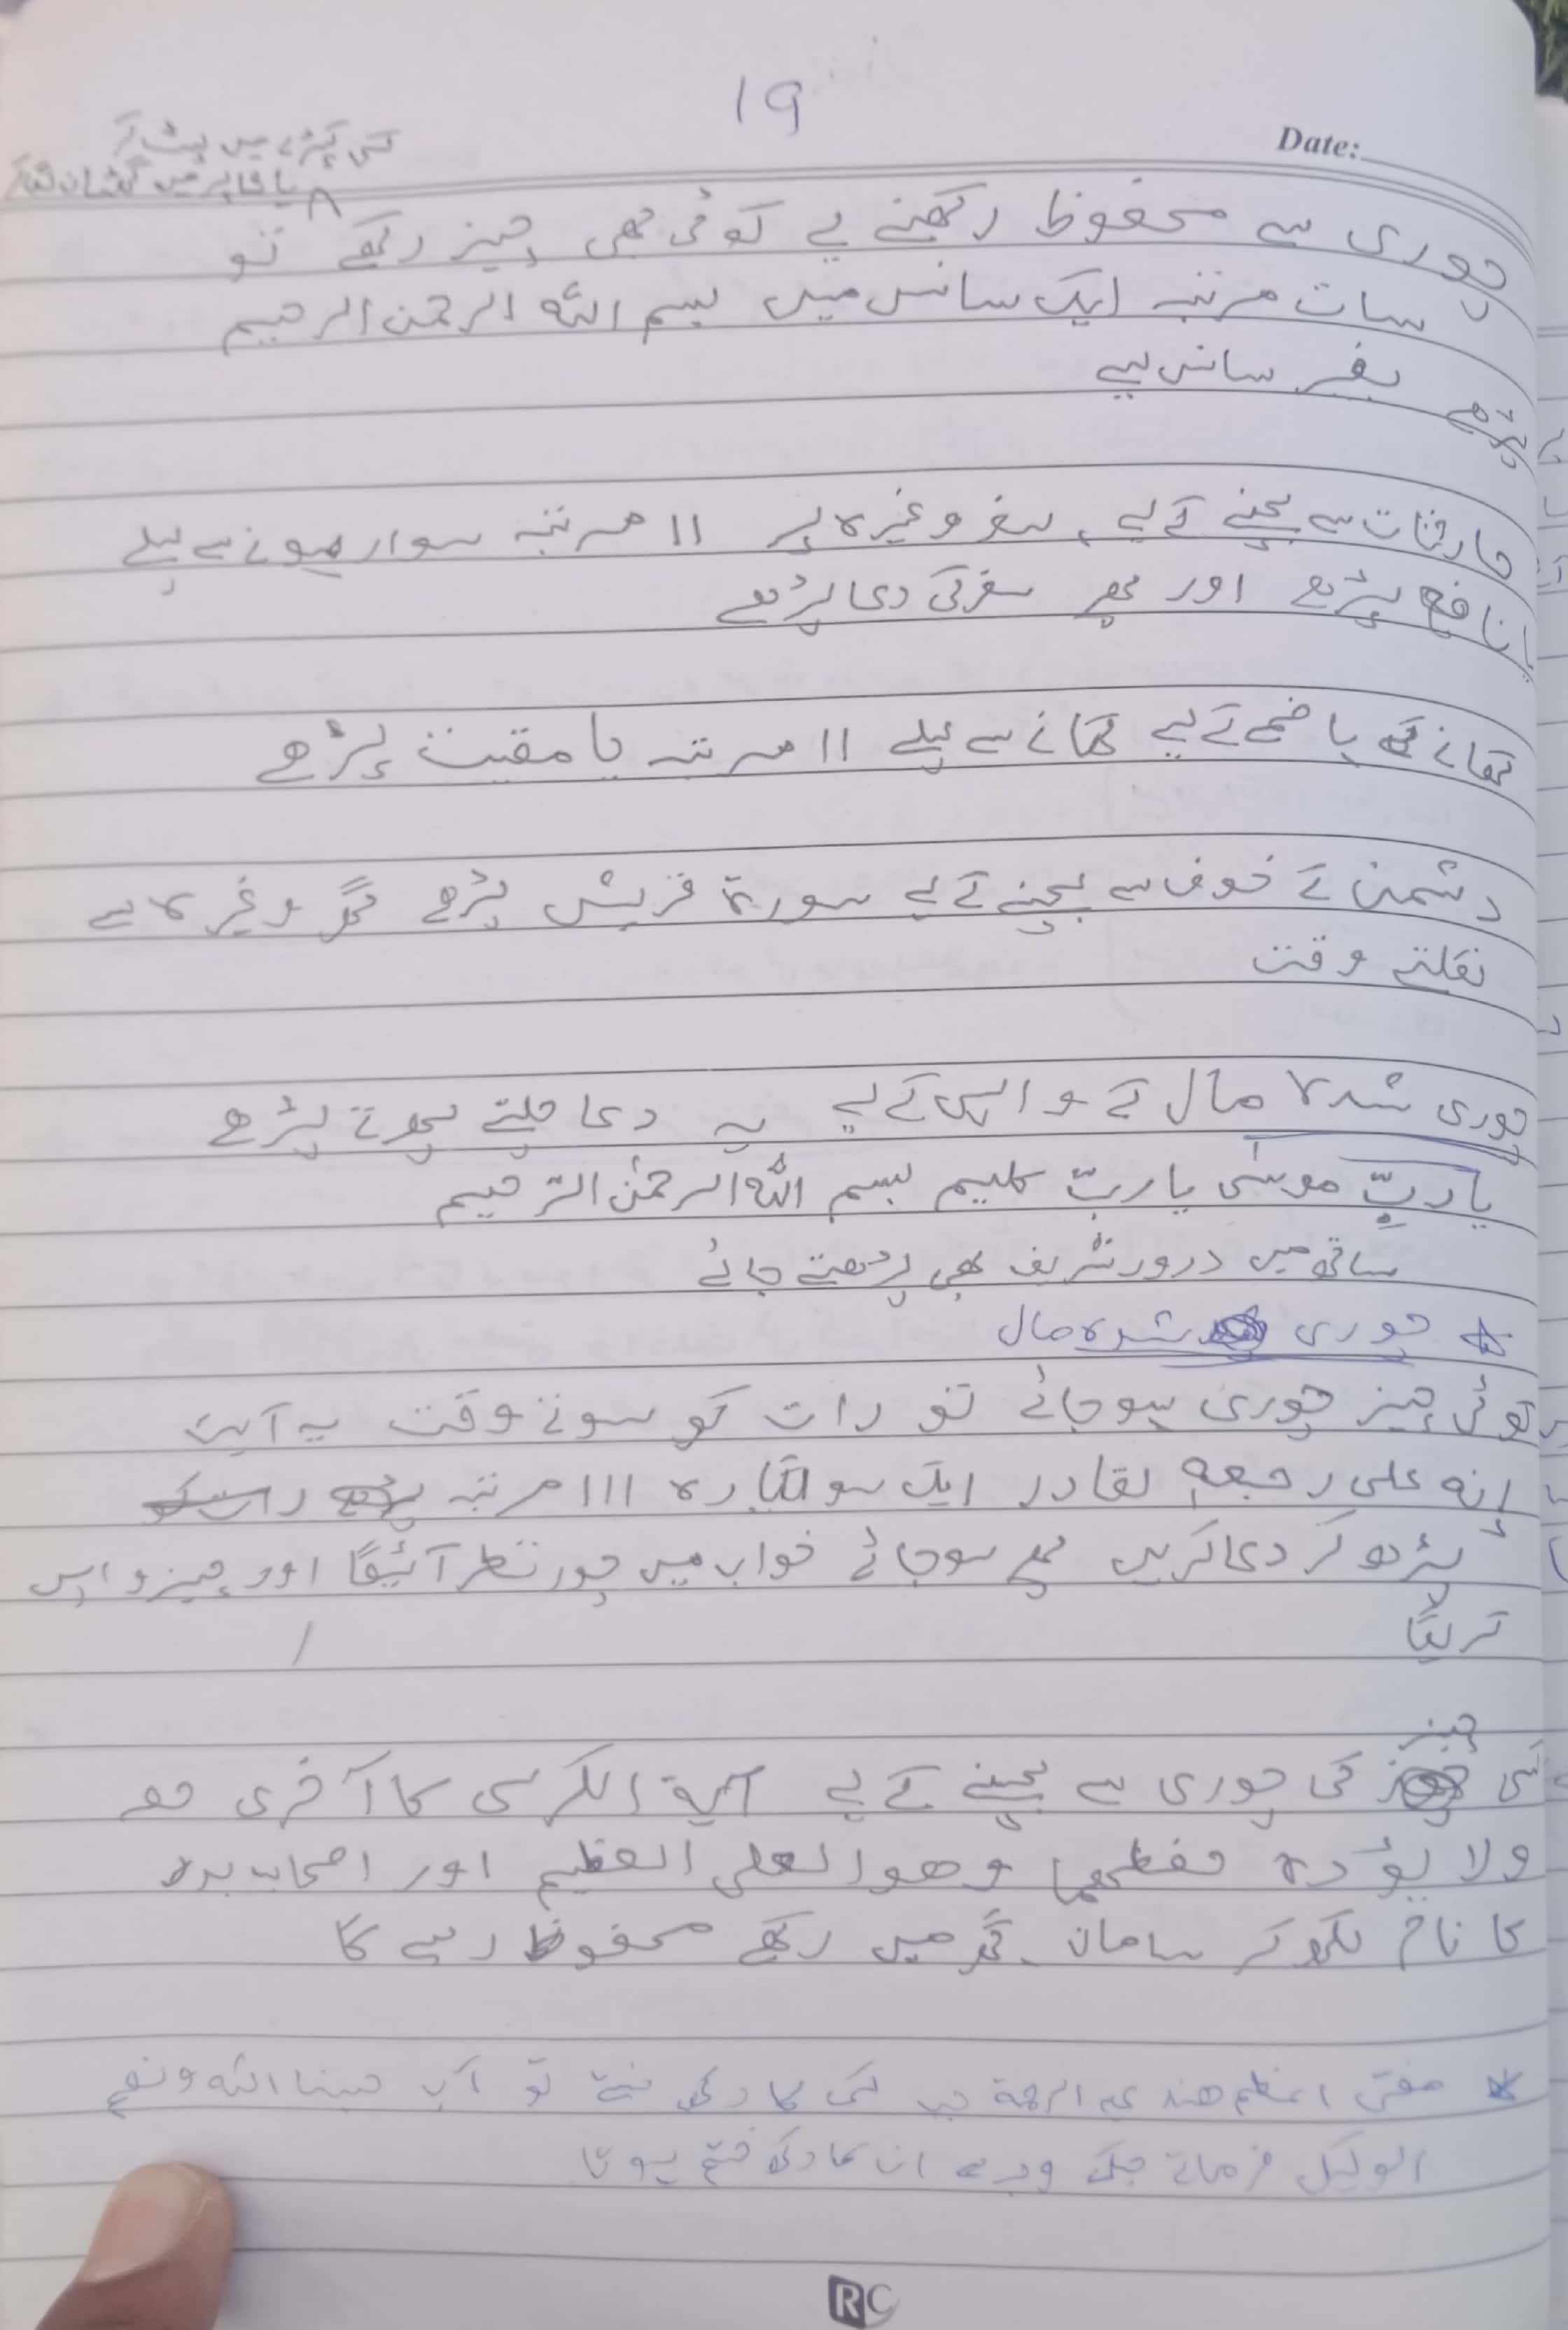 19
Date:
کسی کپڑے میں لپیٹ کر
یا
چوری سے محفوظ رکھنے کے لیے کوئی بھی چیز رکھے تو
سات مرتبہ ایک سانس میں بسم اللہ الرحمٰن الرحیم
بغیر سانس لیے
پڑھے
حادثات سے بچنے کے لیے، سفر وغیرہ پر 11 مرتبہ سوار ہونے سے پہلے
یا نافع پڑھے اور پھر سفر کی دعا پڑھے
کھانے کے ہاضمے کے لیے کھانے سے پہلے 11 مرتبہ یا مقیت پڑھے
دشمن کے خوف سے بچنے کے لیے سورۃ قریش پڑھے گھر وغیرہ سے
نکلتے وقت
چوری شدہ مال کے واپسی کے لیے یہ دعا چلتے پھرتے پڑھے
یا ربِّ موسٰی یا ربِّ کلیم بسم اللہ الرحمٰن الرّحیم
ساتھ میں درود شریف بھی پڑھتے جائے
چوری شدہ مال
کوئی چیز چوری ہو جائے تو رات کو سوتے وقت یہ آیت
إنه علی رجعه لقادر ایک سو گیارہ 111 مرتبہ
پڑھ کر دعا کریں پھر سو جائے خواب میں چور نظر آئیگا اور چیز واپس
کریگا
چیز
کسی کی چوری سے بچنے کے لیے آیۃ الکرسی کا آخری حصہ
ولا یؤدہ حفظھما وھو العلی العظیم اور اصحاب بدر
کا نام لکھ کر سامان گھر میں رکھے محفوظ رہے گا
مفتی اعظم ھند علیہ الرحمۃ جب کسی کا دکھ سنتے تو آپ حسبنا اللہ ونعم
الوکیل فرماتے جسکی وجہ سے ان کا دکھ ختم ہوتا
RC